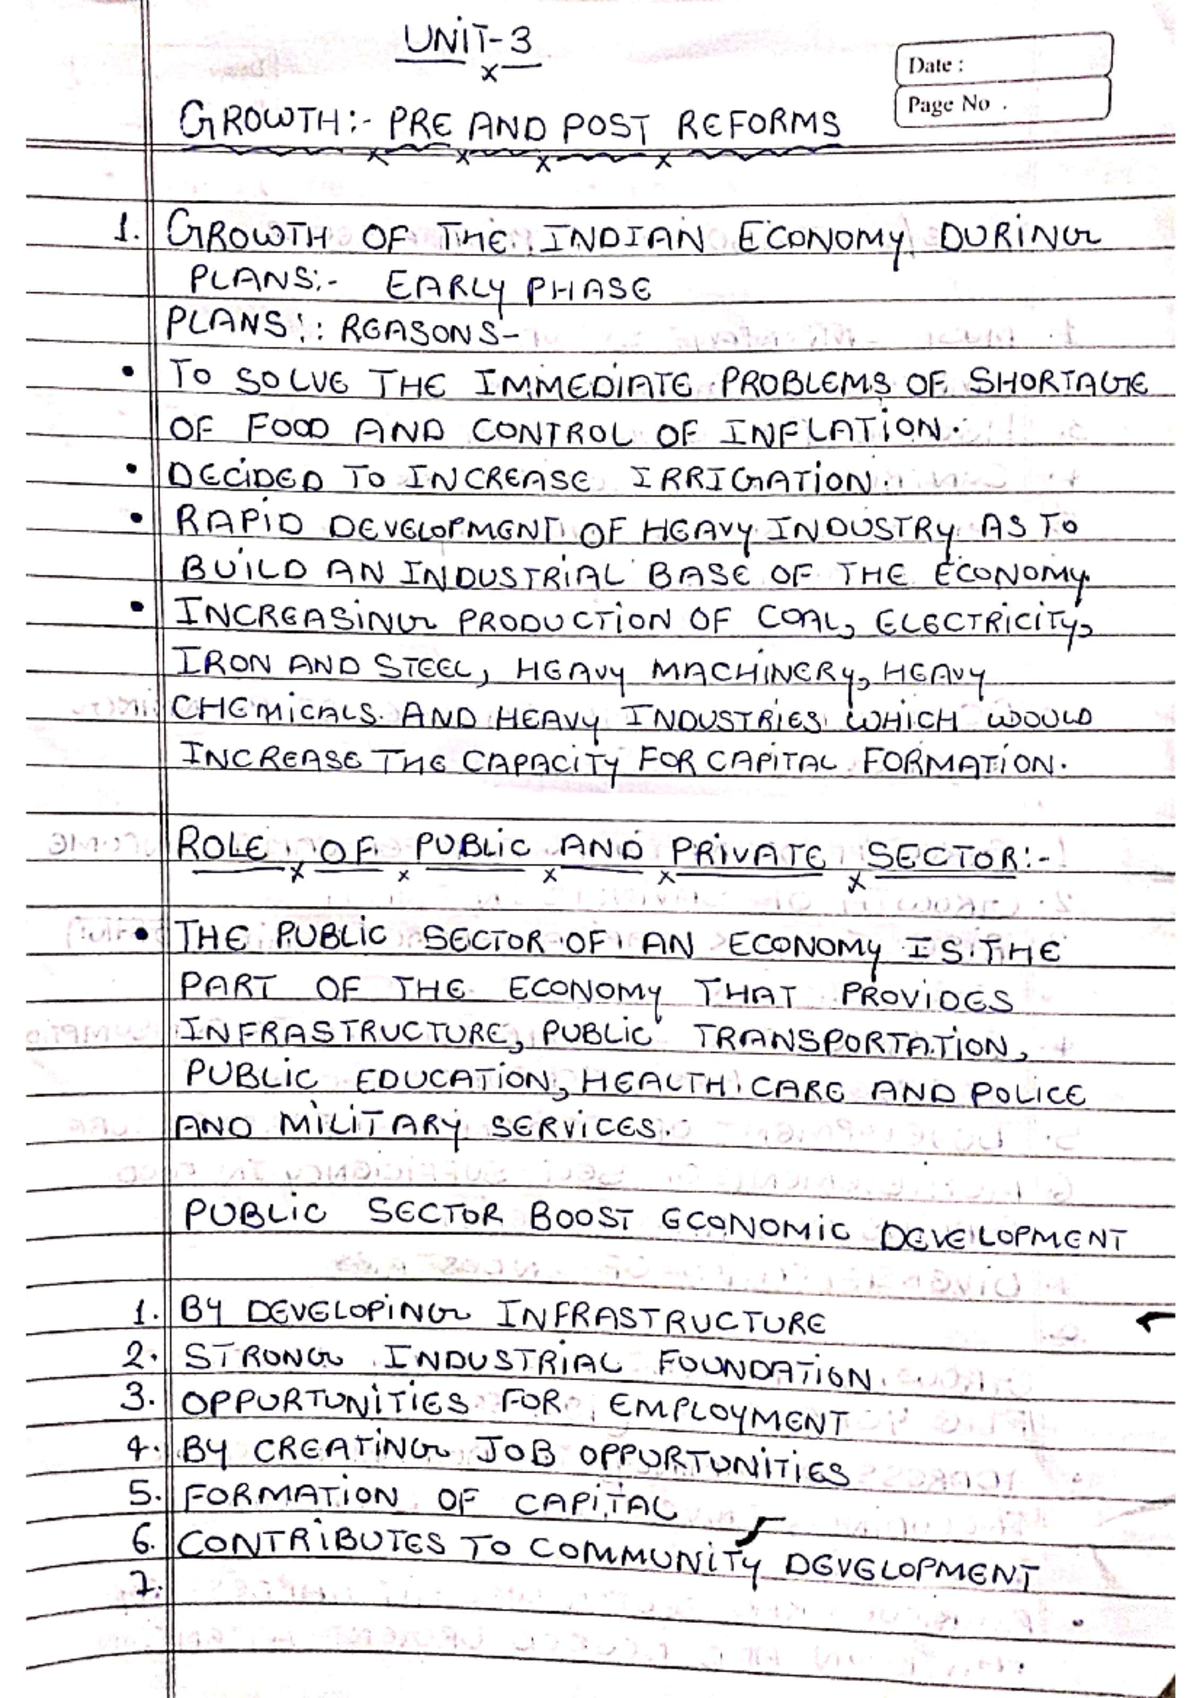 UNIT-3
Date :
Page No .
GROWTH:- PRE AND POST REFORMS
1. GROWTH OF THE INDIAN ECONOMY DURING
PLANS:- EARLY PHASE
PLANS:: REASONS-
• TO SOLVE THE IMMEDIATE PROBLEMS OF SHORTAGE
OF FOOD AND CONTROL OF INFLATION.
• DECIDED TO INCREASE IRRIGATION.
• RAPID DEVELOPMENT OF HEAVY INDUSTRY AS TO
BUILD AN INDUSTRIAL BASE OF THE ECONOMY.
• INCREASING PRODUCTION OF COAL, ELECTRICITY,
IRON AND STEEL, HEAVY MACHINERY, HEAVY
CHEMICALS AND HEAVY INDUSTRIES WHICH WOULD
INCREASE THE CAPACITY FOR CAPITAL FORMATION.
ROLE OF PUBLIC AND PRIVATE SECTOR:-
• THE PUBLIC SECTOR OF AN ECONOMY IS THE
PART OF THE ECONOMY THAT PROVIDES
INFRASTRUCTURE, PUBLIC TRANSPORTATION,
PUBLIC EDUCATION, HEALTH CARE AND POLICE
AND MILITARY SERVICES.
PUBLIC SECTOR BOOST ECONOMIC DEVELOPMENT
1. BY DEVELOPING INFRASTRUCTURE
2. STRONG INDUSTRIAL FOUNDATION
3. OPPURTUNITIES FOR EMPLOYMENT
4. BY CREATING JOB OPPURTUNITIES
5. FORMATION OF CAPITAL
6. CONTRIBUTES TO COMMUNITY DEVELOPMENT
7.